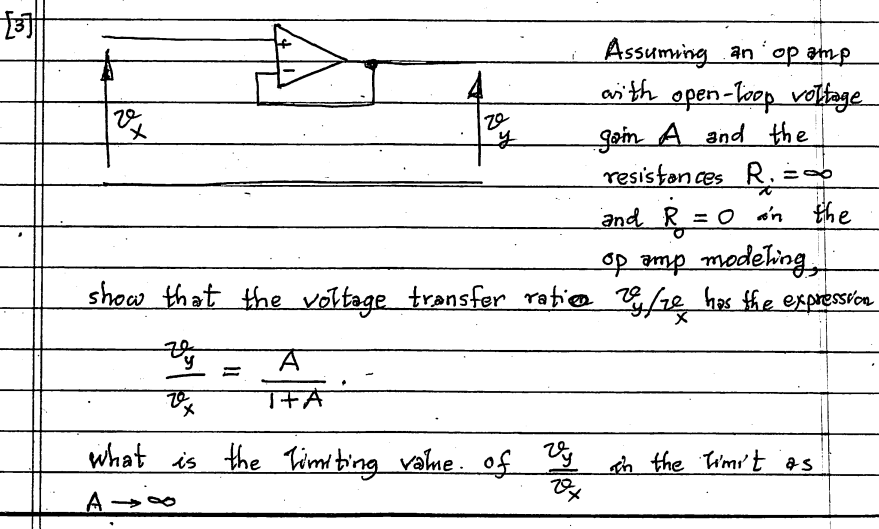 [3]
+
−
v_x
v_y
Assuming an op amp
with open-loop voltage
gain A and the
resistances R_i = ∞
and R_o = 0 in the
op amp modeling,
show that the voltage transfer ratio v_y/v_x has the expression
v_y/v_x = A/(1+A).
what is the limiting value of v_y/v_x in the limit as
A → ∞